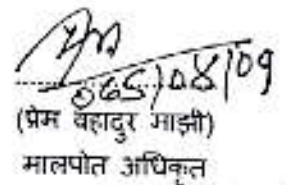 ०६५/०४/०९
(प्रेम वहादुर माझी)
मालपोत अधिकृत